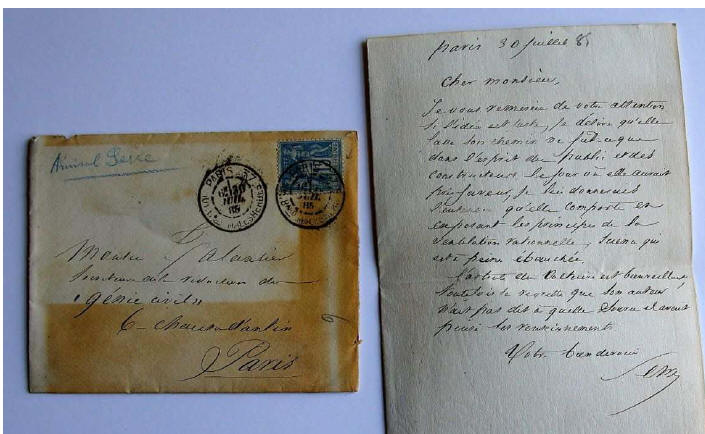 Amiral Serre
PARIS
JUIL
85
Monsieur
secrétaire de la rédaction du
génie civil
6 chaussée d'antin
Paris
paris 30 juillet 85
cher monsieur,
Je vous remercie de votre attention
si l'idée est juste, je désire qu'elle
fasse son chemin
dans l'esprit du public et des
constructeurs le jour où elle aurait
pris faveur, je lui donnerais
l'extension qu'elle comporte en
exposant les principes de la
ventilation rationnelle, science qui
est à peine ébauchée.
L'article de
toutefois je regrette que son auteur
n'ait pas dit à quelle source il avait
puisé les renseignements
Votre bien dévoué
Serre